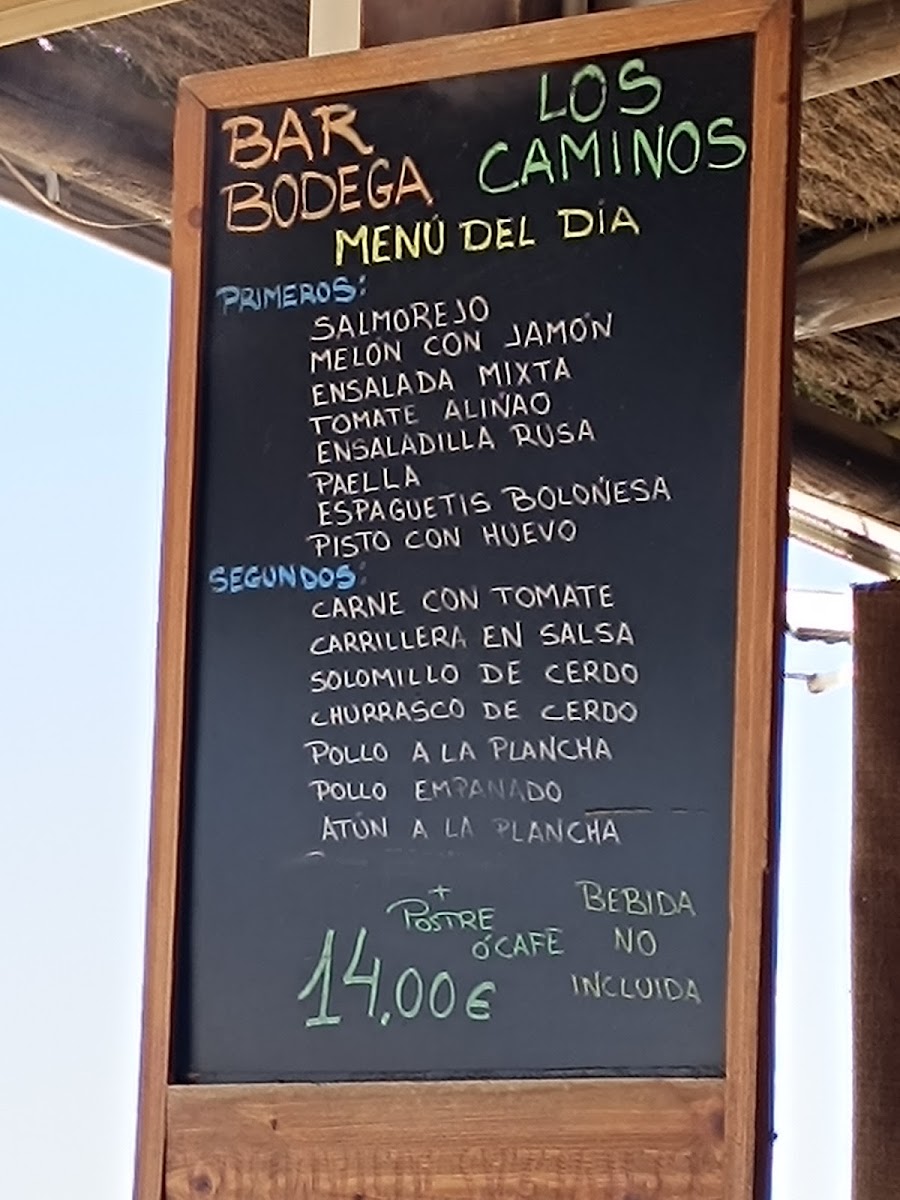 BAR BODEGA
LOS CAMINOS
MENÚ DEL DÍA
PRIMEROS:
SALMOREJO
MELÓN CON JAMÓN
ENSALADA MIXTA
TOMATE ALIÑAO
ENSALADILLA RUSA
PAELLA
ESPAGUETIS BOLOÑESA
PISTO CON HUEVO
SEGUNDOS:
CARNE CON TOMATE
CARRILLERA EN SALSA
SOLOMILLO DE CERDO
CHURRASCO DE CERDO
POLLO A LA PLANCHA
POLLO EMPANADO
ATÚN A LA PLANCHA
+
POSTRE
Ó CAFE
14,00€
BEBIDA
NO
INCLUIDA